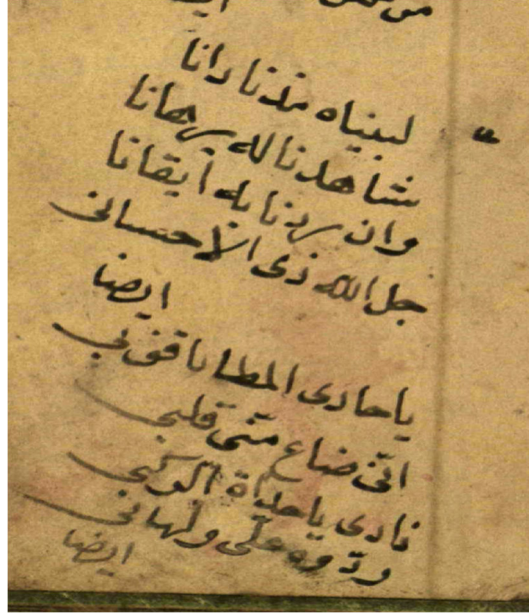 لبيناه مذ نادانا
شاهدنا له برهانا
وان زدنا به ايقانا
جل الله ذى الاحسانى
ايضا
يا حادى المطايا قف بى
انّى ضاع منّى قلبى
نادى يا حداة الركبى
ردّوه علّى ولهانى
ايضا